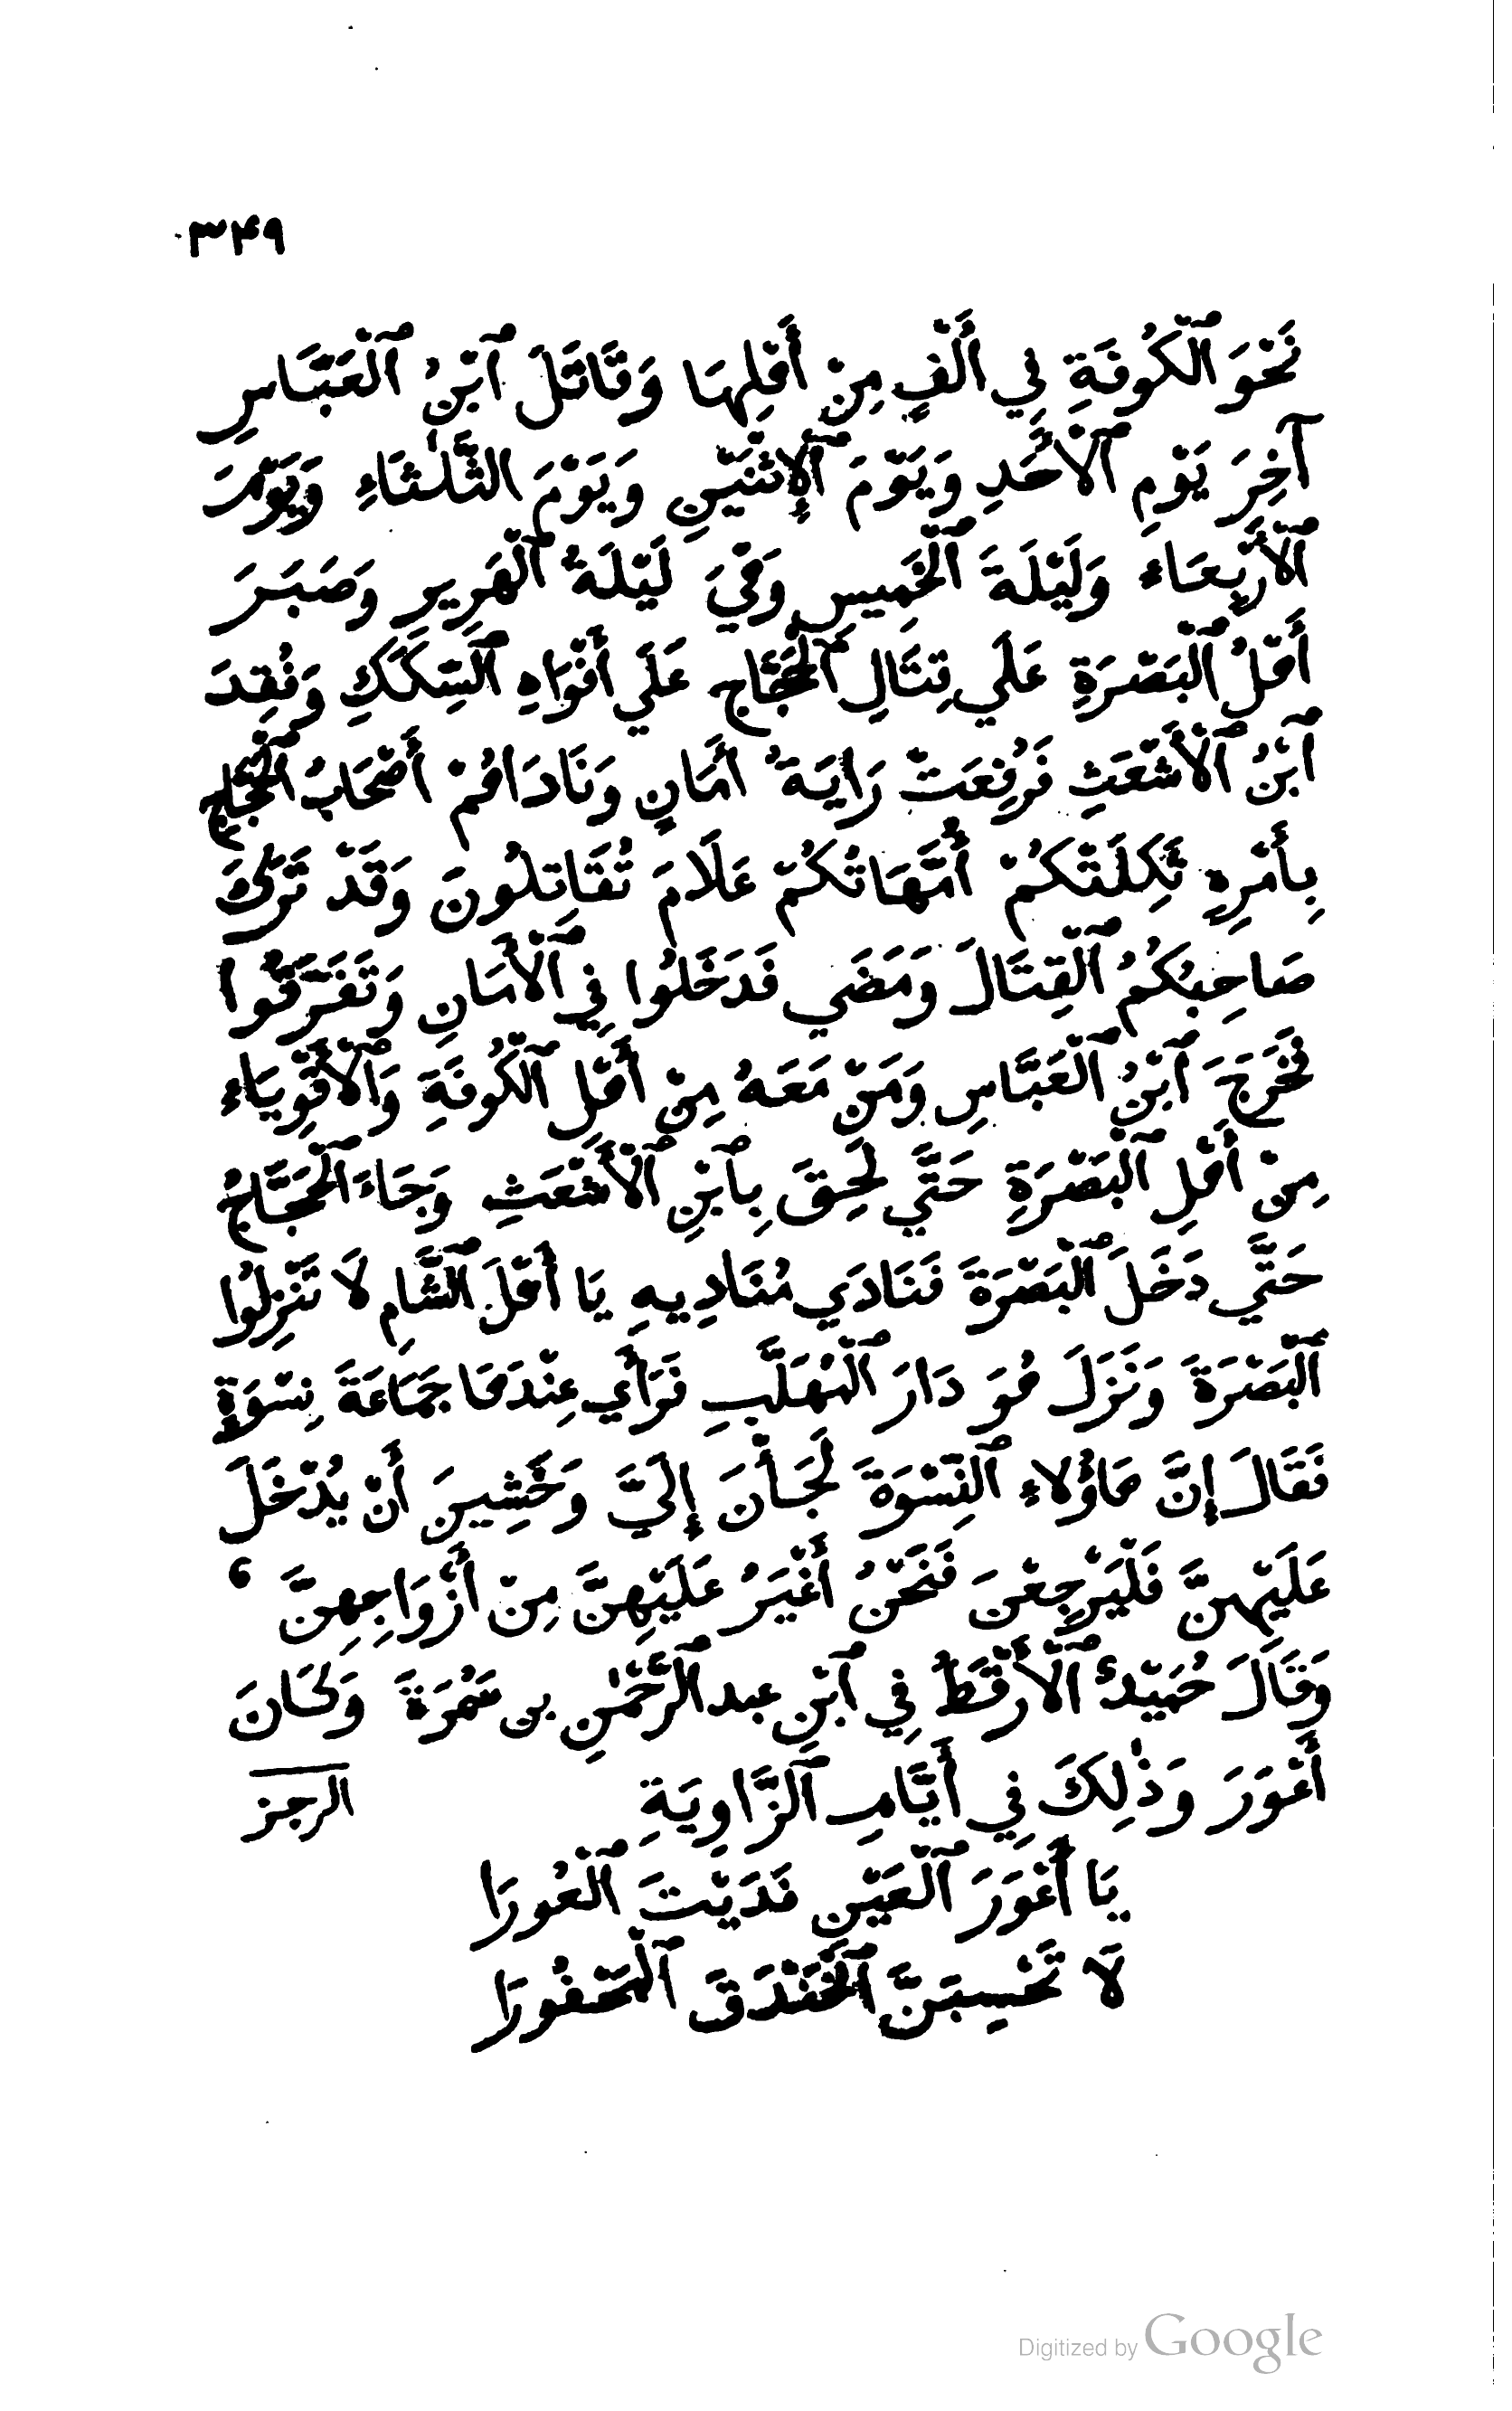 ٣۴٩
نَحْوَ ٱلْكُوفَةِ فِي أَلْفٍ مِنْ أَهْلِهَا وَقَاتَلَ ٱبْنُ ٱلْعَبَّاسِ
آخِرَ يَوْمِ ٱلْأَحَدِ وَيَوْمَ ٱلْإِثْنَيْنِ وَيَوْمَ الثَّلٰثَاءِ وَيَوْمَ
ٱلْأَرْبِعَاءَ وَلَيْلَةَ ٱلْخَمِيسِ وَهِيَ لَيْلَةُ ٱلْهَرِيرِ وَصَبَرَ
أَهْلُ ٱلْبَصْرَةِ عَلَي قِتَالِ ٱلْحَجَّاجِ عَلَي أَفْوَاهِ ٱلسِّكَكِ وَفُقِدَ
ٱبْنُ ٱلْأَشْعَثِ فَرُفِعَتْ رَايَةُ أَمَانٍ وَنَادَاهُمْ أَصْحَابُ ٱلْحَجَّاجِ
بِأَمْرِهِ ثَكِلَتْكُمْ أُمَّهَاتُكُمْ عَلَامَ تُقَاتِلُونَ وَقَدْ تَرَكَ
صَاحِبُكُمُ ٱلْقِتَالَ وَمَضَي فَدَخَلُوا فِي ٱلْأَمَانِ وَتَفَرَّقُوا
فَخَرَجَ ٱبْنُ ٱلْعَبَّاسِ وَمَنْ مَعَهُ مِنْ أَهْلِ ٱلْكُوفَةِ وَٱلْأَقْوِيَاءِ
مِنْ أَهْلِ ٱلْبَصْرَةِ حَتَّي لَحِقَ بِٱبْنِ ٱلْأَشْعَثِ وَجَاءَ ٱلْحَجَّاجُ
حَتَّي دَخَلَ ٱلْبَصْرَةَ فَنَادَي مُنَادِيهِ يَا أَهْلَ ٱلشَّامِ لَا تَنْزِلُوا
ٱلْبَصْرَةَ وَنَزَلَ هُوَ دَارَ ٱلْمُهَلَّبِ فَرَأَي عِنْدَهَا جَمَاعَةَ نِسْوَةٍ
فَقَالَ إِنَّ هَاؤُلَاءِ ٱلنِّسْوَةَ لَجَأْنَ إِلَيَّ وَخَشِينَ أَنْ يُدْخَلَ
عَلَيْهِنَّ فَلْيَرْجِعْنَ فَنَحْنُ أَغْيَرُ عَلَيْهِنَّ مِنْ أَزْوَاجِهِنَّ ،
وَقَالَ حُمَيْدٌ ٱلْأَرْقَطُ فِي ٱبْنِ عبد ٱلرَّحْمٰنِ بن سَمُرَةَ وَكَانَ
أَعْوَرَ وَذٰلِكَ فِي أَيَّامِ ٱلزَّاوِيَةِ الرجز
يَا أَعْوَرَ ٱلْعَيْنِ فَدَيْتَ ٱلْعُورَا
لَا تَحْسِبَنَّ ٱلْخَنْدَقَ ٱلْمَحْفُورَا
Digitized by Google